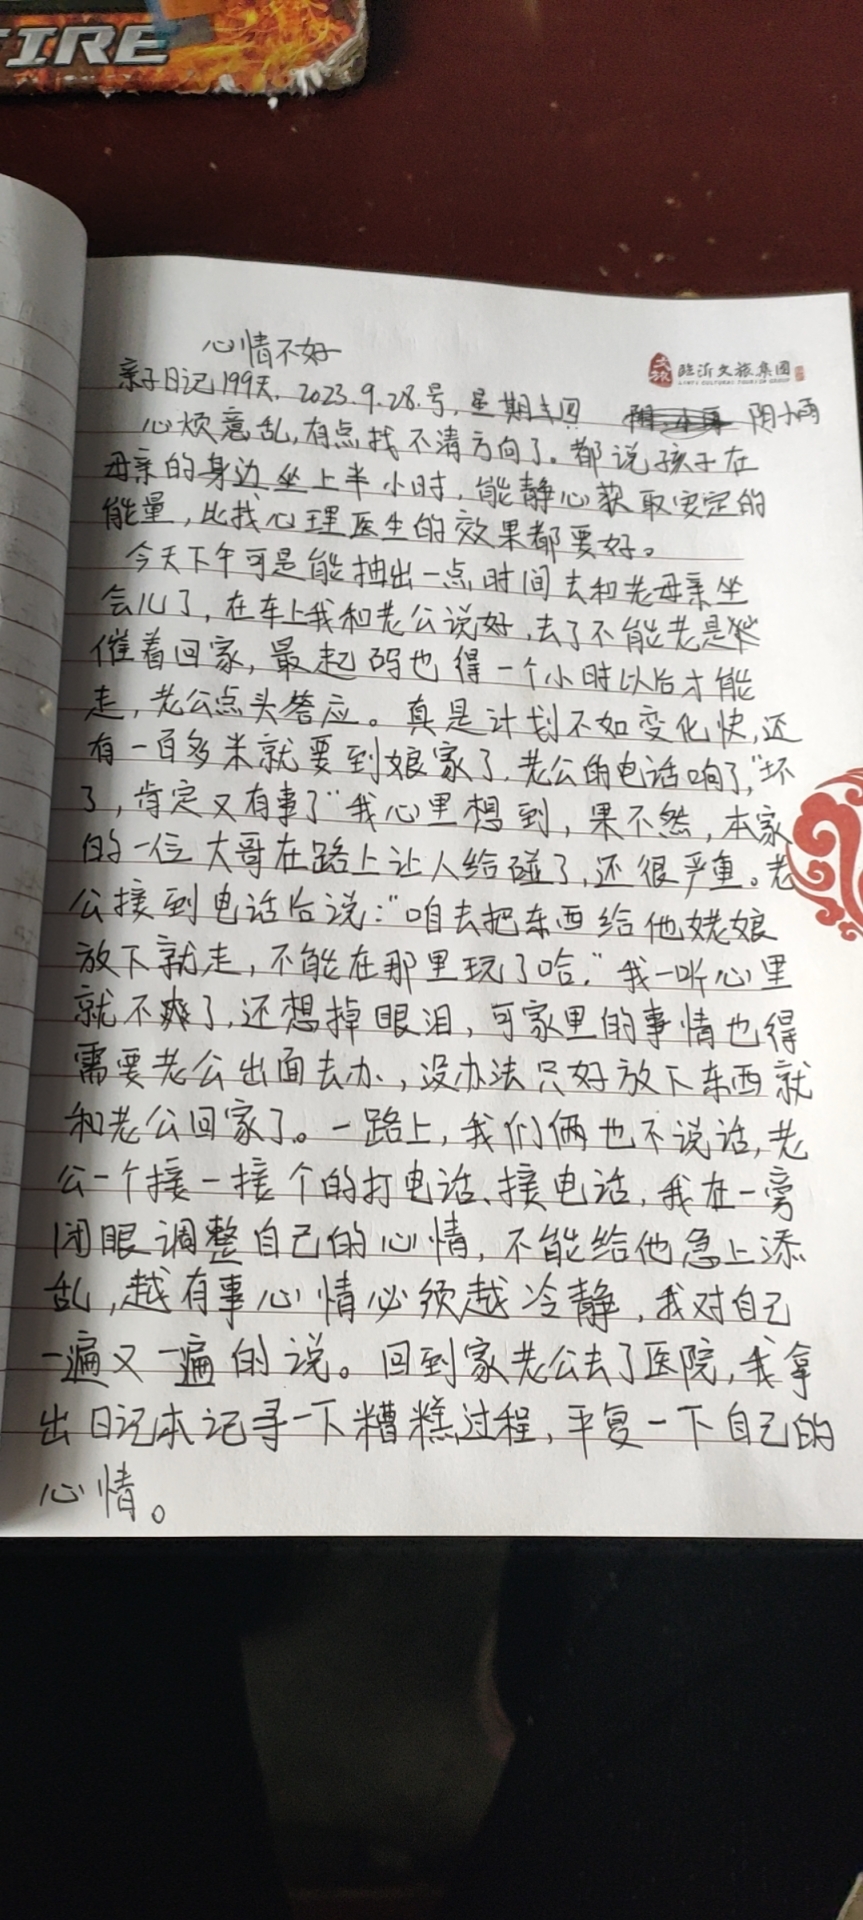 FIRE
心情不好
临沂文旅集团
LINYI CULTURAL TOURISM GROUP
亲子日记199天. 2023.9.28.号,星期四 阴小雨
心烦意乱,有点找不清方向了。都说孩子在
母亲的身边坐上半小时,能静心获取安定的
能量,比找心理医生的效果都要好。
今天下午可是能抽出一点时间去和老母亲坐
会儿了,在车上我和老公说好,去了不能老是
催着回家,最起码也得一个小时以后才能
走,老公点头答应。真是计划不如变化快,还
有一百多米就要到娘家了.老公的电话响了,“坏
了,肯定又有事了”我心里想到,果不然,本家
的一位大哥在路上让人给碰了,还很严重。老
公接到电话后说:“咱去把东西给他姥娘
放下就走,不能在那里玩了哈.”我一听心里
就不爽了,还想掉眼泪,可家里的事情也得
需要老公出面去办,没办法只好放下东西就
和老公回家了。一路上,我们俩也不说话,老
公一个接一接个的打电话、接电话,我在一旁
闭眼调整自己的心情,不能给他急上添
乱,越有事心情必须越冷静,我对自己
一遍又一遍的说。回到家老公去了医院,我拿
出日记本记录一下糟糕过程,平复一下自己的
心情。